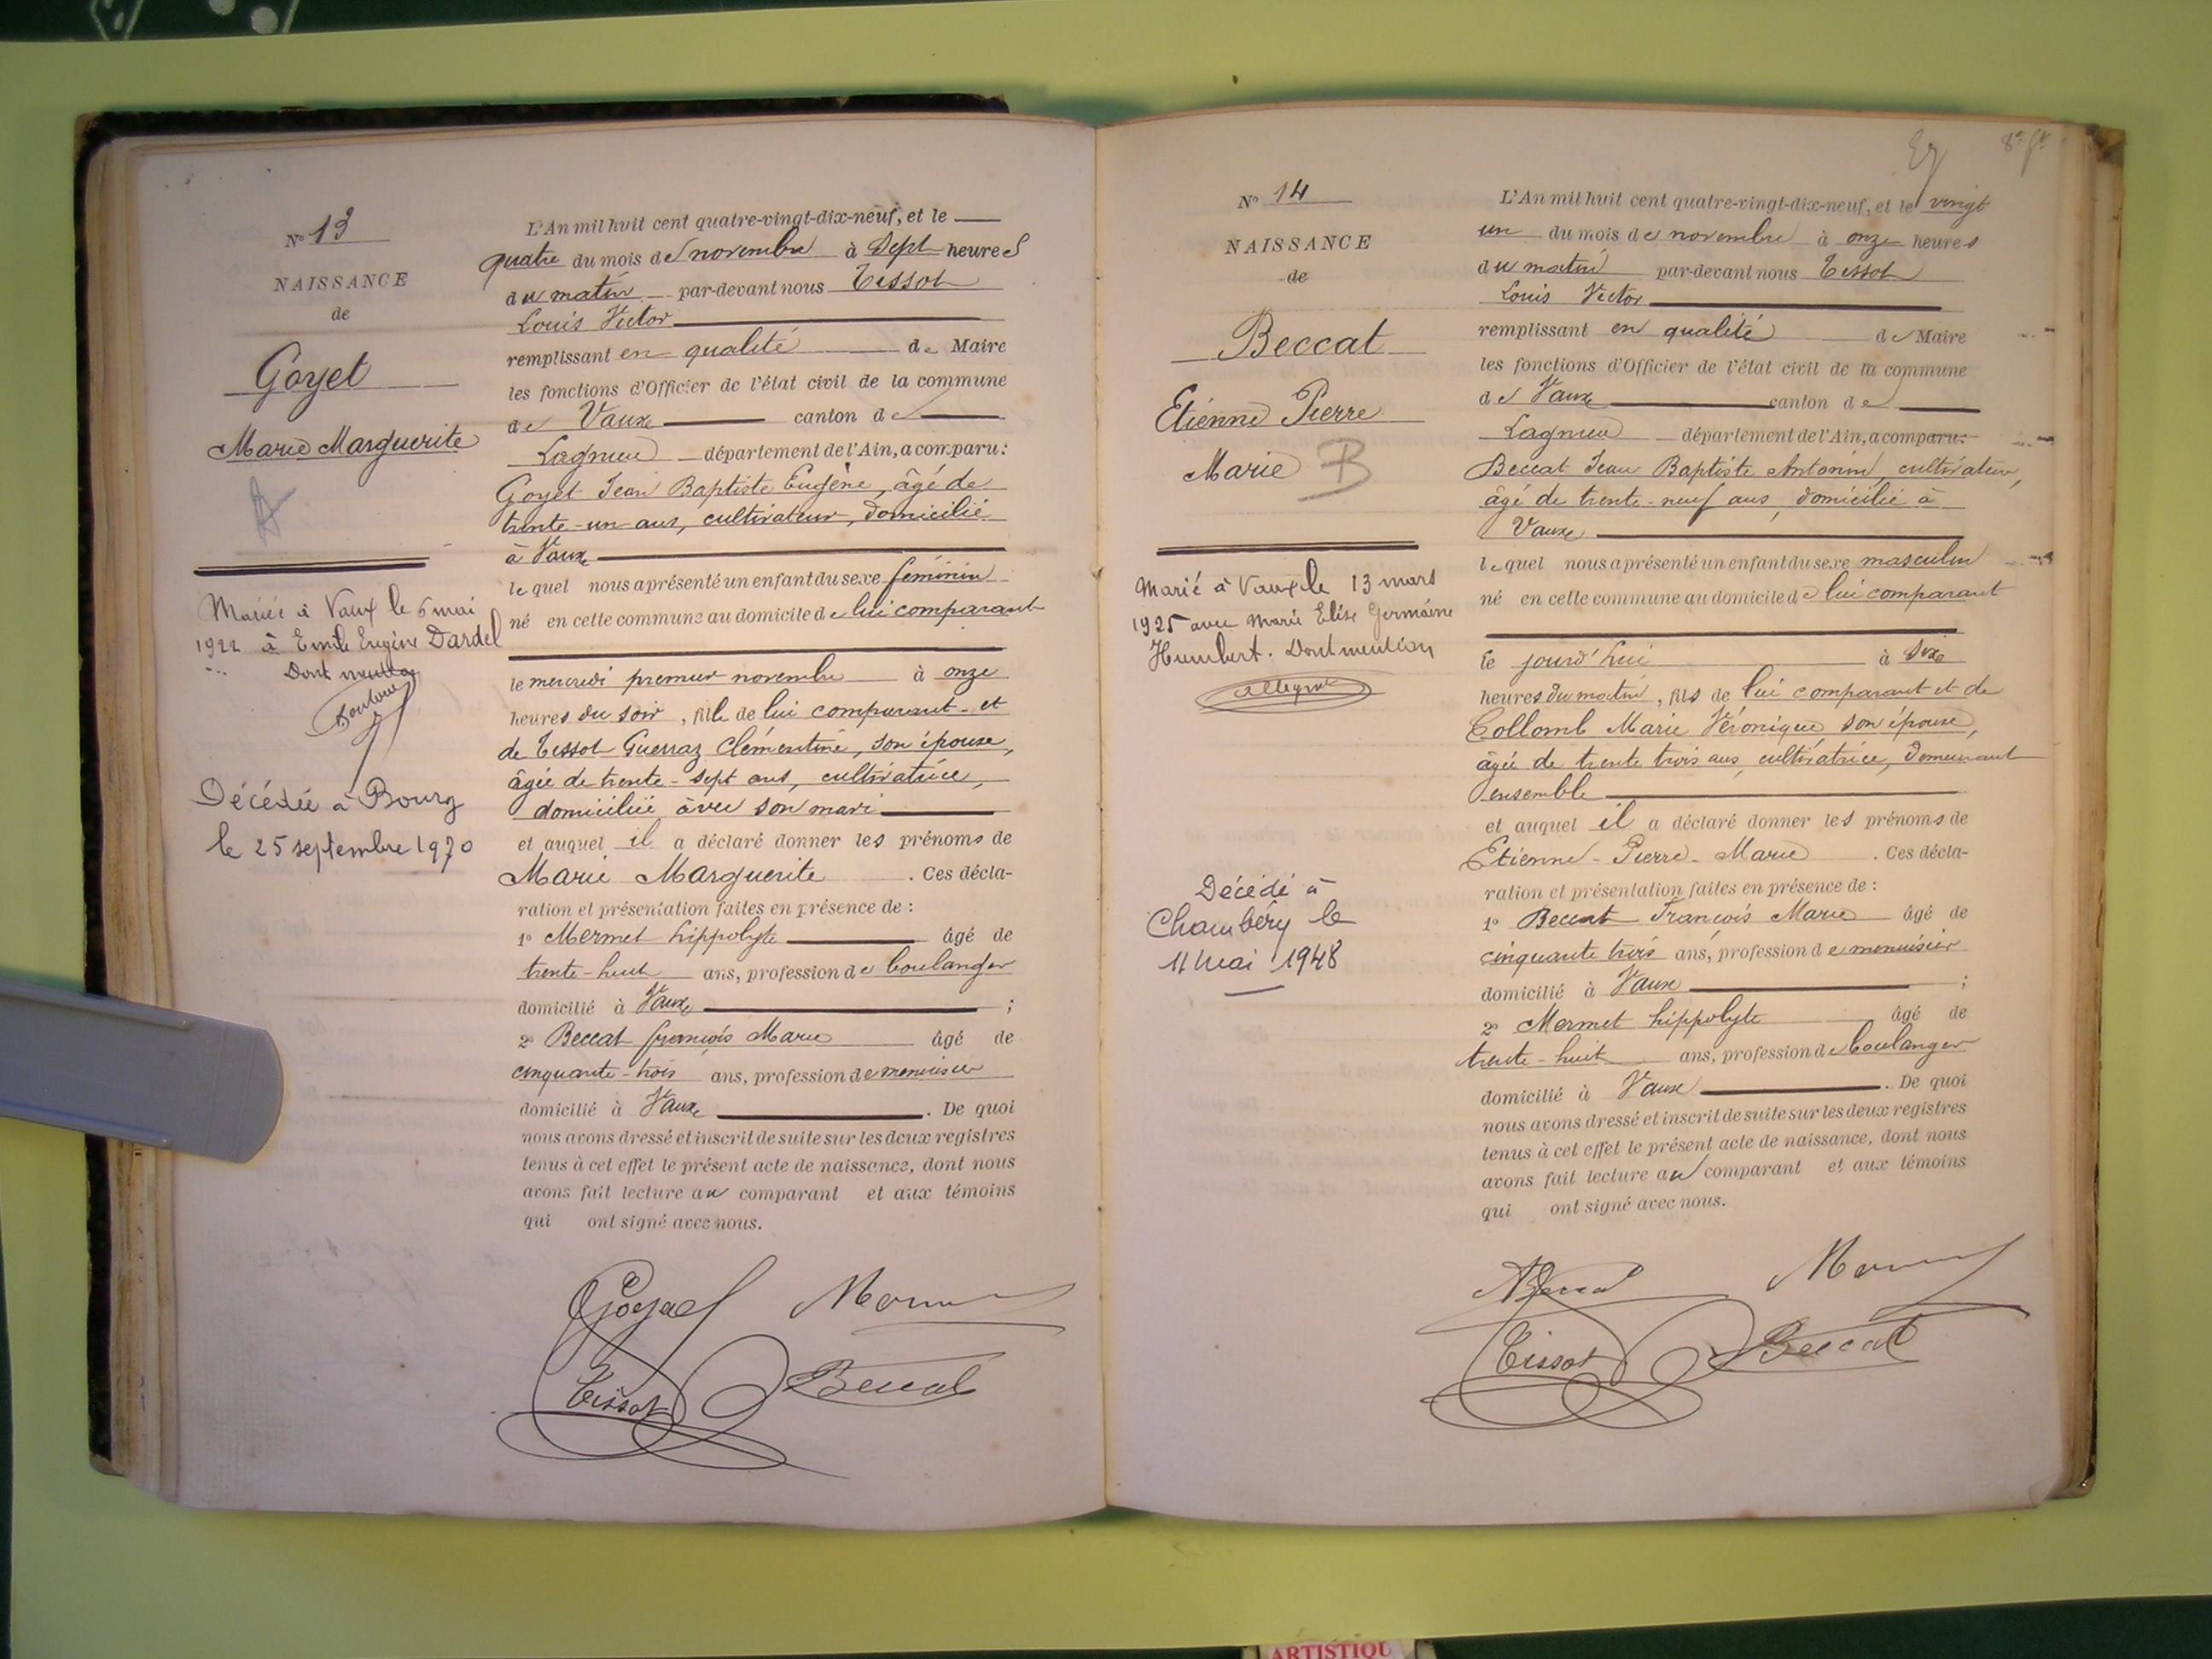 Nº 13
NAISSANCE
de
Goyet
Marie Marguerite
Mariée à Vaux le 6 mai
1922 à Emile Eugène Dardel
Dont mention
Décédée à Bourg
le 25 septembre 1970
L'An mil huit cent quatre-vingt-dix-neuf, et le
quatre du mois de novembre à Sept heures
du matin par-devant nous Tissot
Louis Victor
remplissant en qualité de Maire
les fonctions d'Officier de l'état civil de la commune
de Vaux canton de
Lagnieu département de l'Ain, a comparu:
Goyet Jean Baptiste Eugène, âgé de
trente-un ans, cultivateur, domicilié
à Vaux
lequel nous a présenté un enfant du sexe féminin
né en cette commune au domicile de lui comparant
le mercredi premier novembre à onze
heures du soir, fille de lui comparant et
de Tissot Guerraz Clémentine, son épouse,
âgée de trente-sept ans, cultivatrice,
domiciliée avec son mari
et auquel il a déclaré donner les prénoms de
Marie Marguerite. Ces décla-
ration et présentation faites en présence de :
1º Mermet hippolyte âgé de
trente-huit ans, profession de boulanger
domicilié à Vaux ;
2º Beccat françois Marie âgé de
cinquante-trois ans, profession de menuisier
domicilié à Vaux. De quoi
nous avons dressé et inscrit de suite sur les deux registres
tenus à cet effet le présent acte de naissance, dont nous
avons fait lecture au comparant et aux témoins
qui ont signé avec nous.
Goyet
Tissot Beccat
8e ft
Nº 14
NAISSANCE
de
Beccat
Etienne Pierre
Marie B
Marié à Vaux le 13 mars
1925 avec Marie Elise Germaine
Humbert. Dont mention
Décédé à
Chambéry le
11 Mai 1948
L'An mil huit cent quatre-vingt-dix-neuf, et le vingt
un du mois de novembre à onze heures
du matin par-devant nous Tissot
Louis Victor
remplissant en qualité de Maire
les fonctions d'Officier de l'état civil de la commune
de Vaux canton de
Lagnieu département de l'Ain, a comparu:
Beccat Jean Baptiste Antonin, cultivateur,
âgé de trente-neuf ans, domicilié à
Vaux
lequel nous a présenté un enfant du sexe masculin
né en cette commune au domicile de lui comparant
le jourd'hui à dix
heures du matin, fils de lui comparant et de
Collomb Marie Véronique, son épouse,
âgée de trente trois ans, cultivatrice, demeurant
ensemble
et auquel il a déclaré donner les prénoms de
Etienne-Pierre-Marie. Ces décla-
ration et présentation faites en présence de :
1º Beccat François Marie âgé de
cinquante trois ans, profession de menuisier
domicilié à Vaux ;
2º Mermet hippolyte âgé de
trente-huit ans, profession de boulanger
domicilié à Vaux. De quoi
nous avons dressé et inscrit de suite sur les deux registres
tenus à cet effet le présent acte de naissance, dont nous
avons fait lecture au comparant et aux témoins
qui ont signé avec nous.
Tissot Beccat
ARTISTIQU